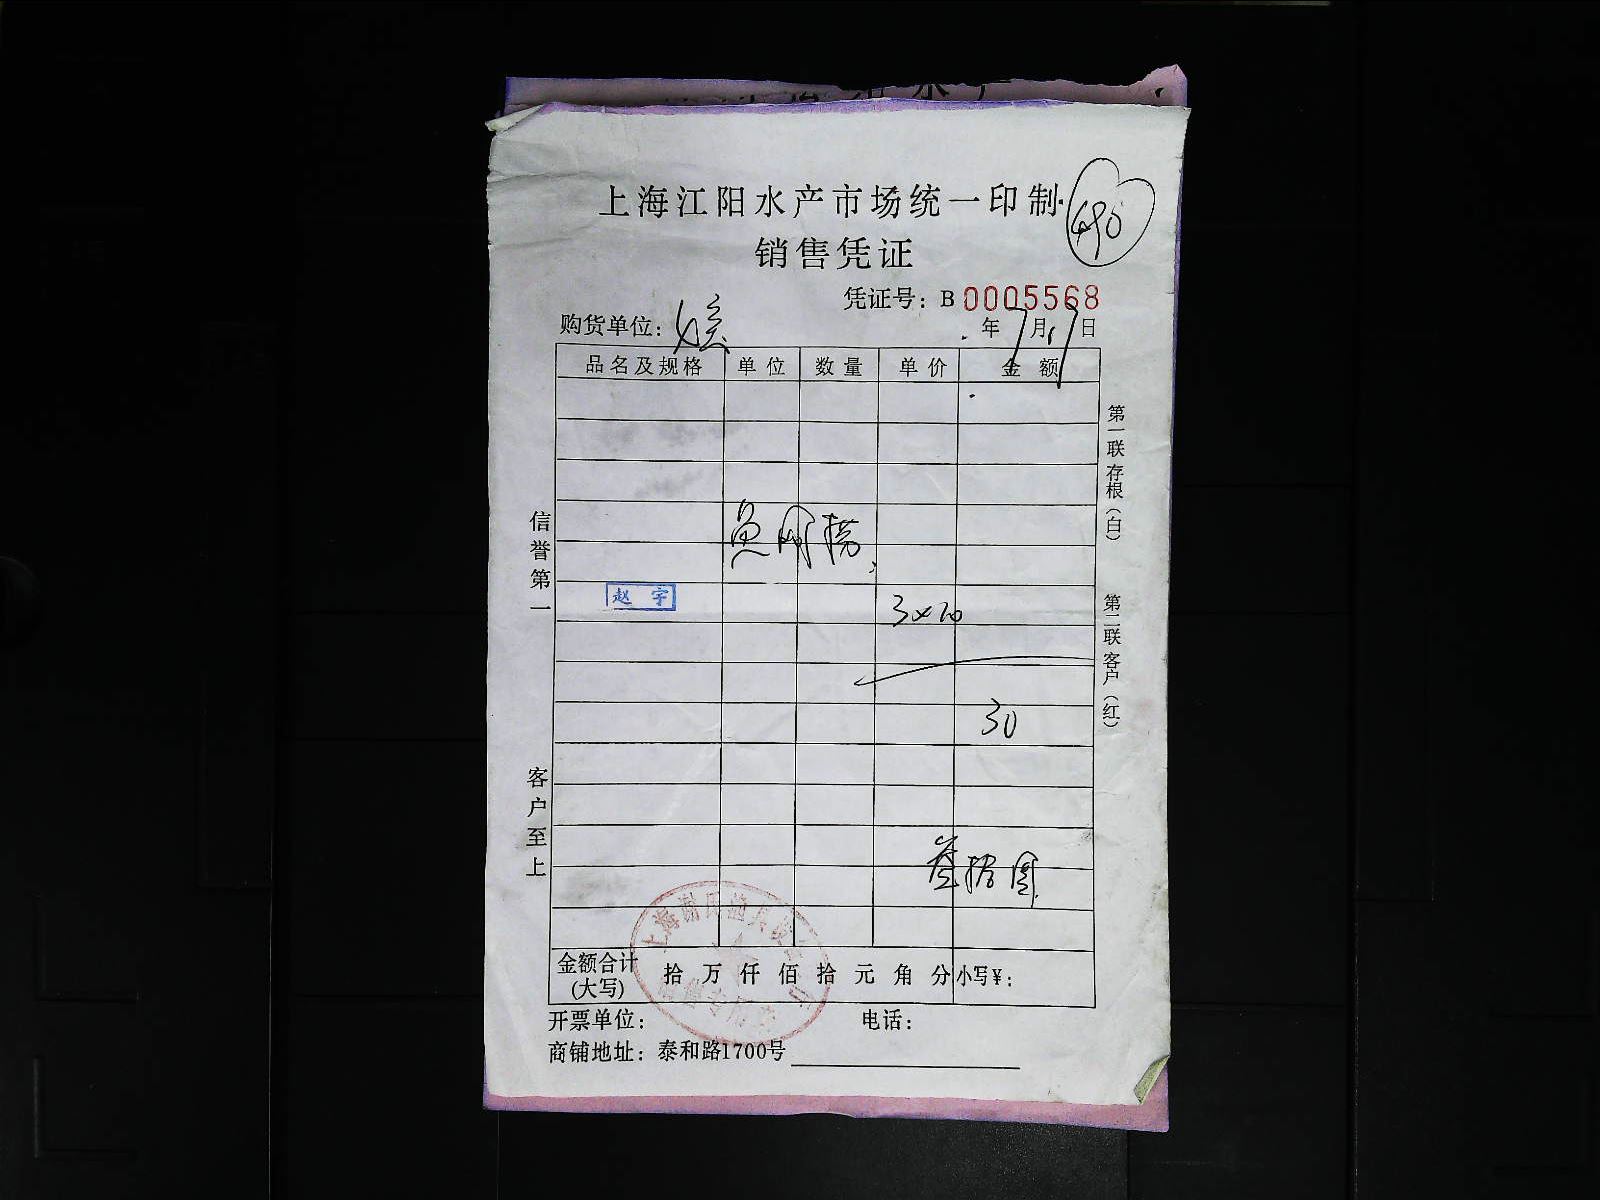 上海江阳水产市场统一印制
490
销售凭证
凭证号：B 0005568
购货单位：
年7月17日
品名及规格 单位 数量 单价 金额
赵宇
3×10
30
叁拾圆
金额合计(大写) 拾 万 仟 佰 拾 元 角 分 小写¥：
开票单位： 电话：
商铺地址：泰和路1700号
信誉第一
客户至上
第一联 存根（白）
第二联 客户（红）